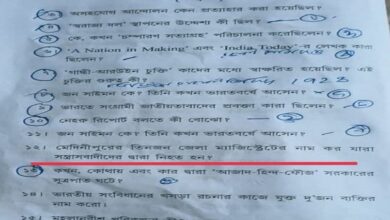 অসহযোগ আন্দোলন কেন প্রত্যাহার করা হয়েছিল?
'স্বরাজ্য দল' স্থাপনের উদ্দেশ্য কী ছিল?
কে, কখন 'চম্পারণ সত্যাগ্রহ' পরিচালনা করেছিলেন?
'A Nation in Making' এবং 'India Today'-র লেখক কারা ছিলেন?
'গান্ধী-আরউইন চুক্তি' কাদের মধ্যে স্বাক্ষরিত হয়েছিল? এই
চুক্তির গুরুত্ব কী? 1928
জন সাইমন কে? তিনি কখন ভারতবর্ষে আসেন?
ভারতে সংগ্রামী জাতীয়তাবাদের প্রবক্তা কারা ছিলেন?
১০। নেহরু রিপোর্ট বলতে কী বোঝো?
১১। জন সাইমন কে? তিনি কখন ভারতবর্ষে আসেন?
১২। মেদিনীপুরের তিনজন জেলা ম্যাজিস্ট্রেটের নাম কর যারা
সন্ত্রাসবাদীদের দ্বারা নিহত হন?
১৩। কখন, কোথায় এবং কার দ্বারা 'আজাদ-হিন্দ-ফৌজ' সরকারের
সূত্রপাত ঘটে?
১৪। ভারতীয় সংবিধানের খসড়া রচনার কাজে যুক্ত দু'জন ব্যক্তির
নাম করো।